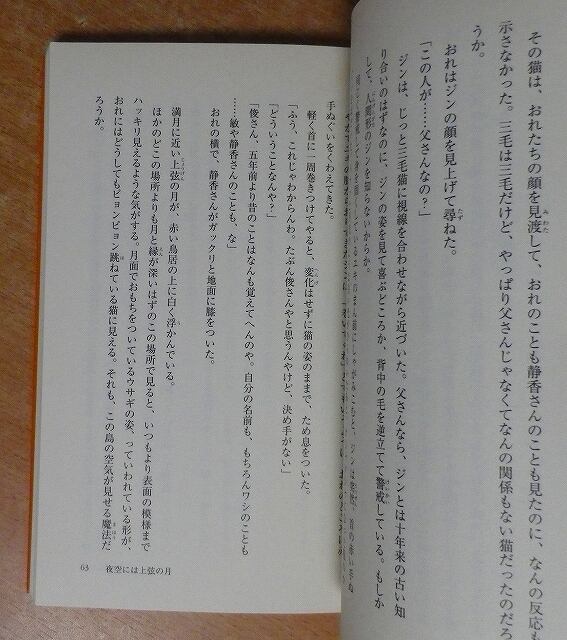 その猫は、おれたちの顔を見渡して、おれのことも静香さんのことも見たのに、なんの反応も
示さなかった。三毛は三毛だけど、やっぱり父さんじゃなくてなんの関係もない猫だったのだろ
うか。
おれはジンの顔を見上げて尋ねた。
「この人が……父さんなの？」
ジンは、じっと三毛猫に視線を合わせながら近づいた。父さんなら、ジンとは十年来の古い知
り合いのはずなのに、ジンの姿を見て喜ぶどころか、背中の毛を逆立てて警戒している。もしか
して、人間形のジンを知らないからか。
手ぬぐいをくわえてきた。
軽く首に一周巻きつけてやると、変化はせずに猫の姿のままで、ため息をついた。
「ふう、これじゃわからんわ。たぶん俊さんやと思うんやけど、決め手がない」
「どういうことなんや？」
「俊さん、五年前より昔のことはなんも覚えてへんのや。自分の名前も、もちろんワシのことも
……敏や静香さんのことも、な」
おれの横で、静香さんがガックリと地面に膝をついた。
満月に近い上弦の月が、赤い鳥居の上に白く浮かんでいる。
ほかのどこの場所よりも月と縁が深いはずのこの場所で見ると、いつもより表面の模様まで
ハッキリ見えるような気がする。月面でおもちをついているウサギの姿、っていわれている形が、
おれにはどうしてもピョンピョン跳ねている猫に見える。それも、この島の空気が見せる魔法だ
ろうか。
63 夜空には上弦の月